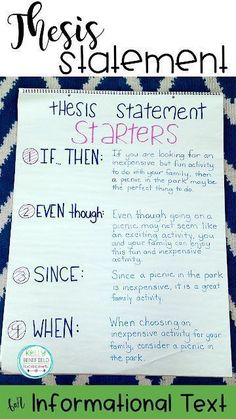 Thesis
Statement
thesis statement
STARTERS
① IF... THEN: If you are looking for an
inexpensive but fun activity
to do with your family, then
a picnic in the park may be
the perfect thing to do.
② EVEN though: Even though going on a
picnic may not seem like
an exciting activity, you
and your family can enjoy
this fun and inexpensive
activity.
③ SINCE: Since a picnic in the park
is inexpensive, it is a great
family activity.
④ WHEN: When choosing an
inexpensive activity for your
family, consider a picnic in
the park.
KELLY
BENEFIELD
for Informational Text